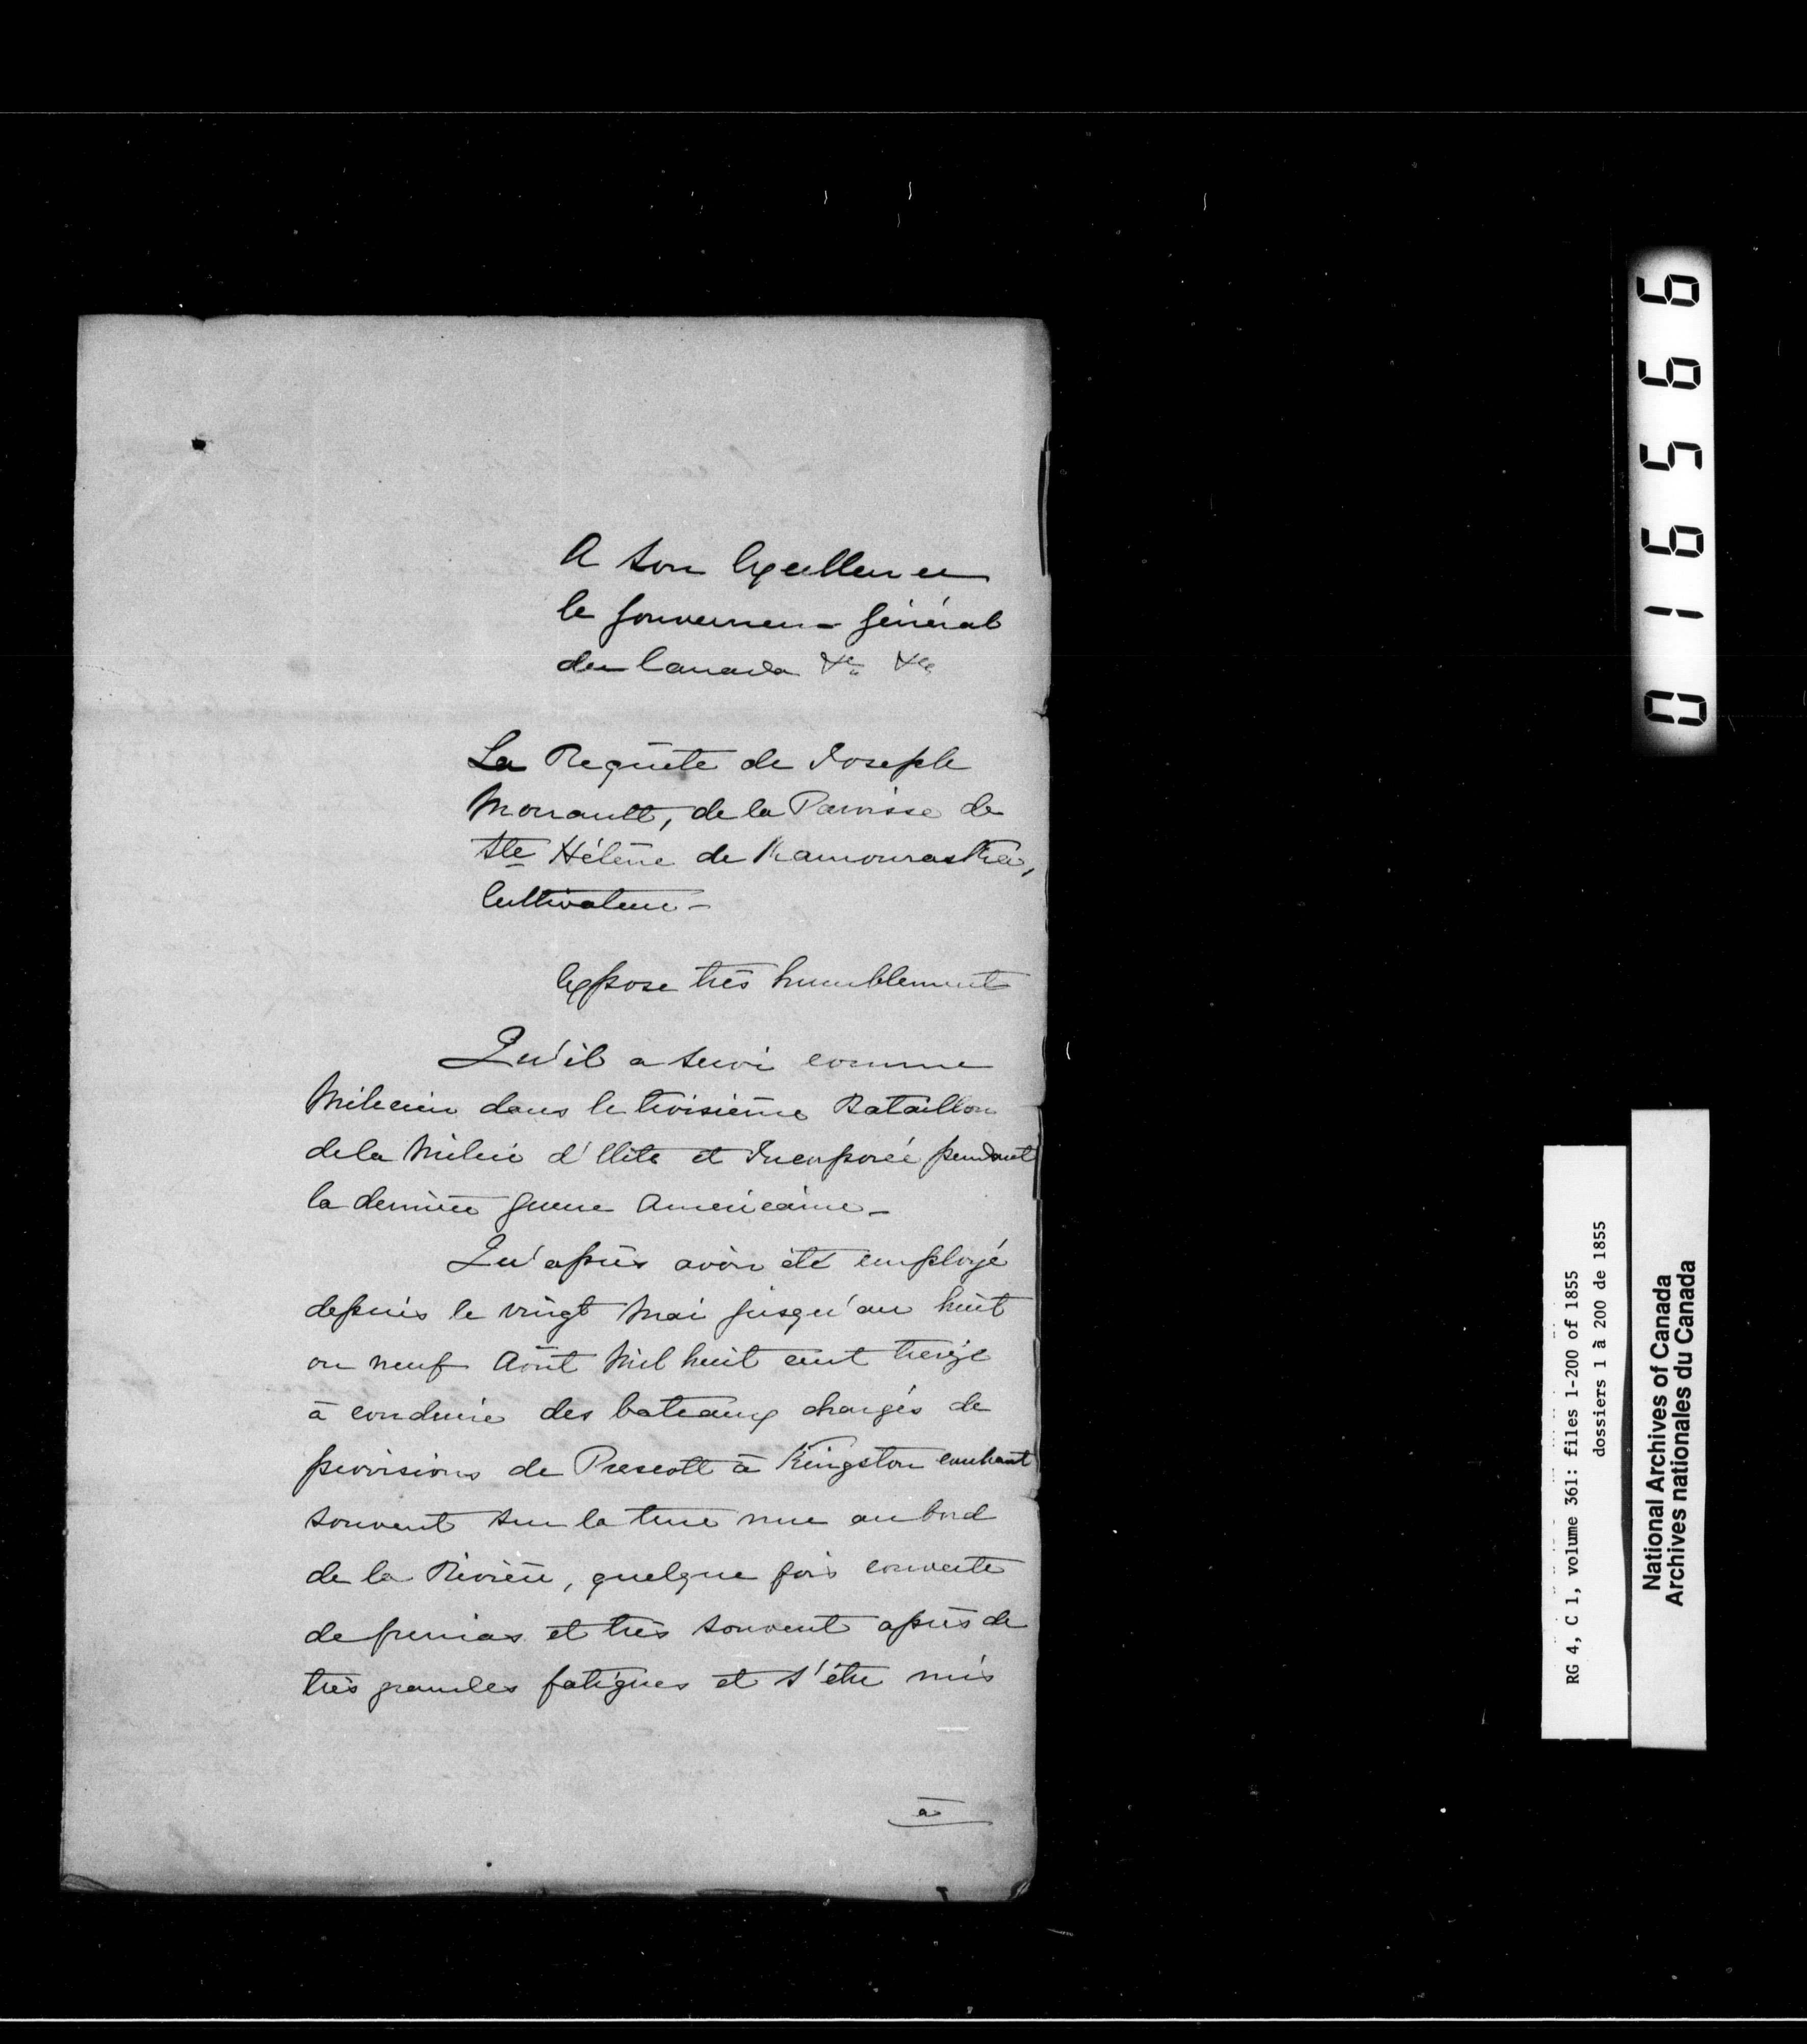 A Son Excellence
le Gouverneur-Général
du Canada &c. &c.
La Requête de Joseph
Morrault, de la Paroisse de
Ste Hélène de Kamouraska,
Cultivateur-
Expose très humblement
Qu'il a servi comme
Milicien dans le troisième Bataillon
de la Milice d'Elite et Incorporée pendant
la dernière guerre Américaine-
Qu'après avoir été employé
depuis le vingt Mai jusqu'au huit
ou neuf Août Mil huit cent treize
à conduire des bateaux chargés de
provisions de Prescott à Kingston couchant
souvent sur la terre nue au bord
de la Rivière, quelque fois couverte
de frimas et très souvent après de
très grandes fatigues et s'être mis
à
016566
RG 4, C 1, volume 361: files 1-200 of 1855
dossiers 1 à 200 de 1855
National Archives of Canada
Archives nationales du Canada